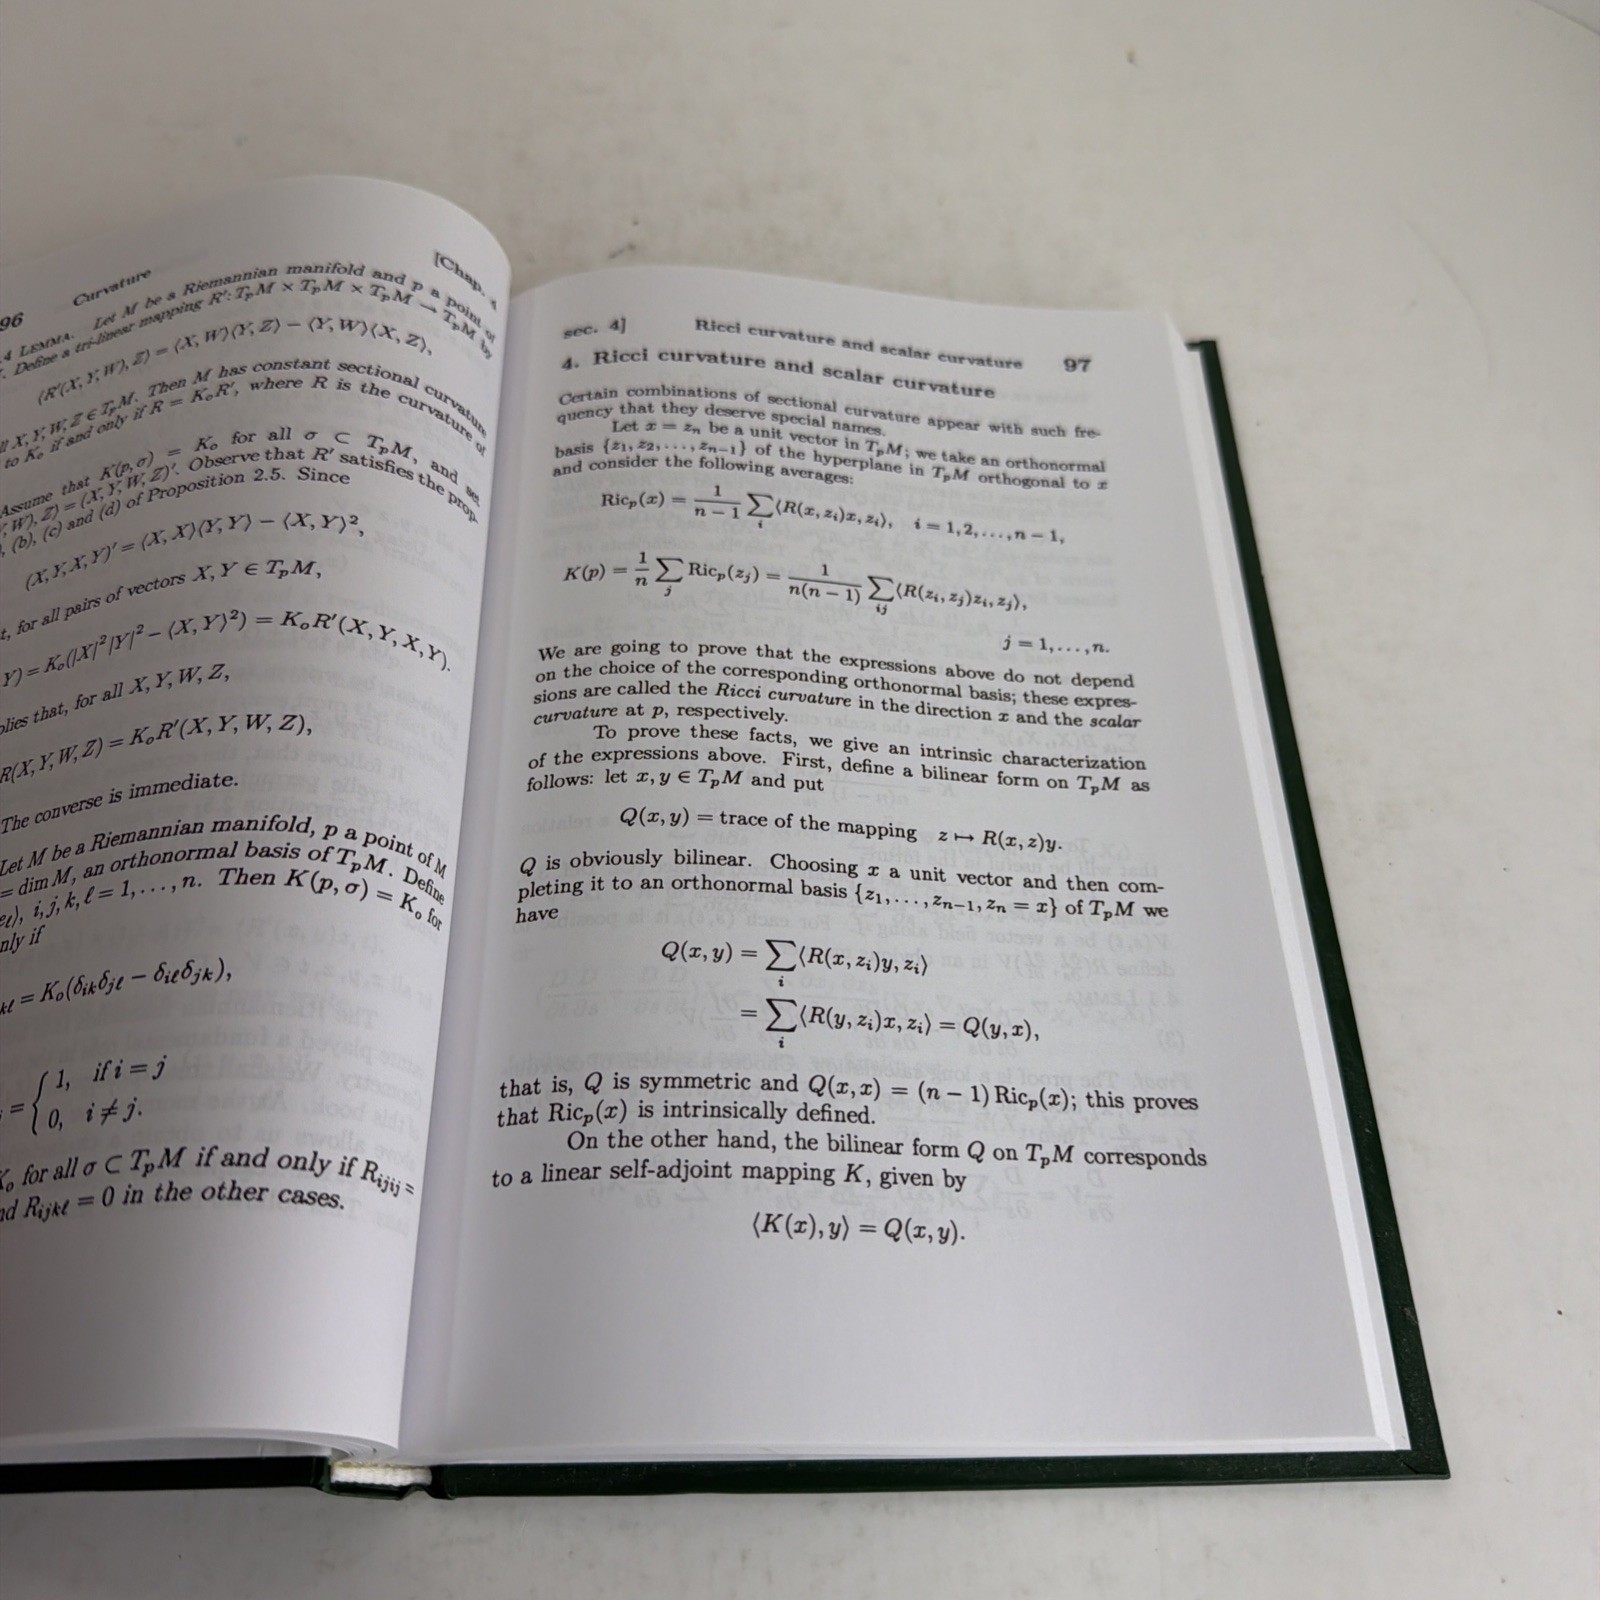 96 Curvature [Chap. 4
.4 LEMMA. Let M be a Riemannian manifold and p a point of
. Define a tri-linear mapping R′: TₚM × TₚM × TₚM → TₚM by
⟨R′(X, Y, W), Z⟩ = ⟨X, W⟩⟨Y, Z⟩ − ⟨Y, W⟩⟨X, Z⟩,
X, Y, W, Z ∈ TₚM. Then M has constant sectional curvature
to Kₒ if and only if R = KₒR′, where R is the curvature of
Assume that K(p, σ) = Kₒ for all σ ⊂ TₚM, and set
W), Z⟩ = (X, Y, W, Z)′. Observe that R′ satisfies the prop-
, (b), (c) and (d) of Proposition 2.5. Since
(X, Y, X, Y)′ = ⟨X, X⟩⟨Y, Y⟩ − ⟨X, Y⟩²,
t, for all pairs of vectors X, Y ∈ TₚM,
Y) = Kₒ(|X|²|Y|² − ⟨X, Y⟩²) = KₒR′(X, Y, X, Y).
plies that, for all X, Y, W, Z,
R(X, Y, W, Z) = KₒR′(X, Y, W, Z),
The converse is immediate.
Let M be a Riemannian manifold, p a point of M
= dim M, an orthonormal basis of TₚM. Define
eℓ⟩, i, j, k, ℓ = 1, . . . , n. Then K(p, σ) = Kₒ for
nly if
kℓ = Kₒ(δᵢₖδⱼℓ − δᵢℓδⱼₖ),
= { 1, if i = j
0, i ≠ j.
Kₒ for all σ ⊂ TₚM if and only if Rᵢⱼᵢⱼ =
nd Rᵢⱼₖℓ = 0 in the other cases.
sec. 4] Ricci curvature and scalar curvature 97
4. Ricci curvature and scalar curvature
Certain combinations of sectional curvature appear with such fre-
quency that they deserve special names.
Let x = zₙ be a unit vector in TₚM; we take an orthonormal
basis {z₁, z₂, . . . , zₙ₋₁} of the hyperplane in TₚM orthogonal to x
and consider the following averages:
Ricₚ(x) = 1/(n − 1) ∑ᵢ ⟨R(x, zᵢ)x, zᵢ⟩, i = 1, 2, . . . , n − 1,
K(p) = 1/n ∑ⱼ Ricₚ(zⱼ) = 1/(n(n − 1)) ∑ᵢⱼ ⟨R(zᵢ, zⱼ)zᵢ, zⱼ⟩,
j = 1, . . . , n.
We are going to prove that the expressions above do not depend
on the choice of the corresponding orthonormal basis; these expres-
sions are called the Ricci curvature in the direction x and the scalar
curvature at p, respectively.
To prove these facts, we give an intrinsic characterization
of the expressions above. First, define a bilinear form on TₚM as
follows: let x, y ∈ TₚM and put
Q(x, y) = trace of the mapping z ↦ R(x, z)y.
Q is obviously bilinear. Choosing x a unit vector and then com-
pleting it to an orthonormal basis {z₁, . . . , zₙ₋₁, zₙ = x} of TₚM we
have
Q(x, y) = ∑ᵢ ⟨R(x, zᵢ)y, zᵢ⟩
= ∑ᵢ ⟨R(y, zᵢ)x, zᵢ⟩ = Q(y, x),
that is, Q is symmetric and Q(x, x) = (n − 1) Ricₚ(x); this proves
that Ricₚ(x) is intrinsically defined.
On the other hand, the bilinear form Q on TₚM corresponds
to a linear self-adjoint mapping K, given by
⟨K(x), y⟩ = Q(x, y).